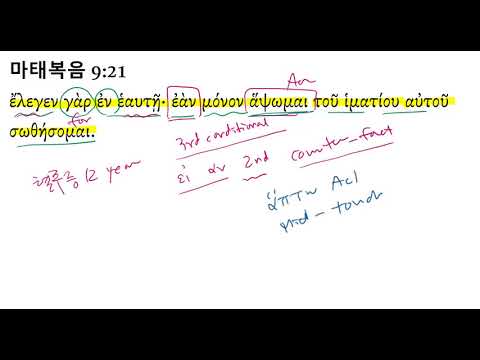 마태복음 9:21
Aor
ἔλεγεν γὰρ ἐν ἑαυτῇ· ἐὰν μόνον ἅψωμαι τοῦ ἱματίου αὐτοῦ
for
σωθήσομαι.
3rd conditional
혈루증 12 year
εἰ αν 2nd counter-fact
ἁπτω Act
mid - touch